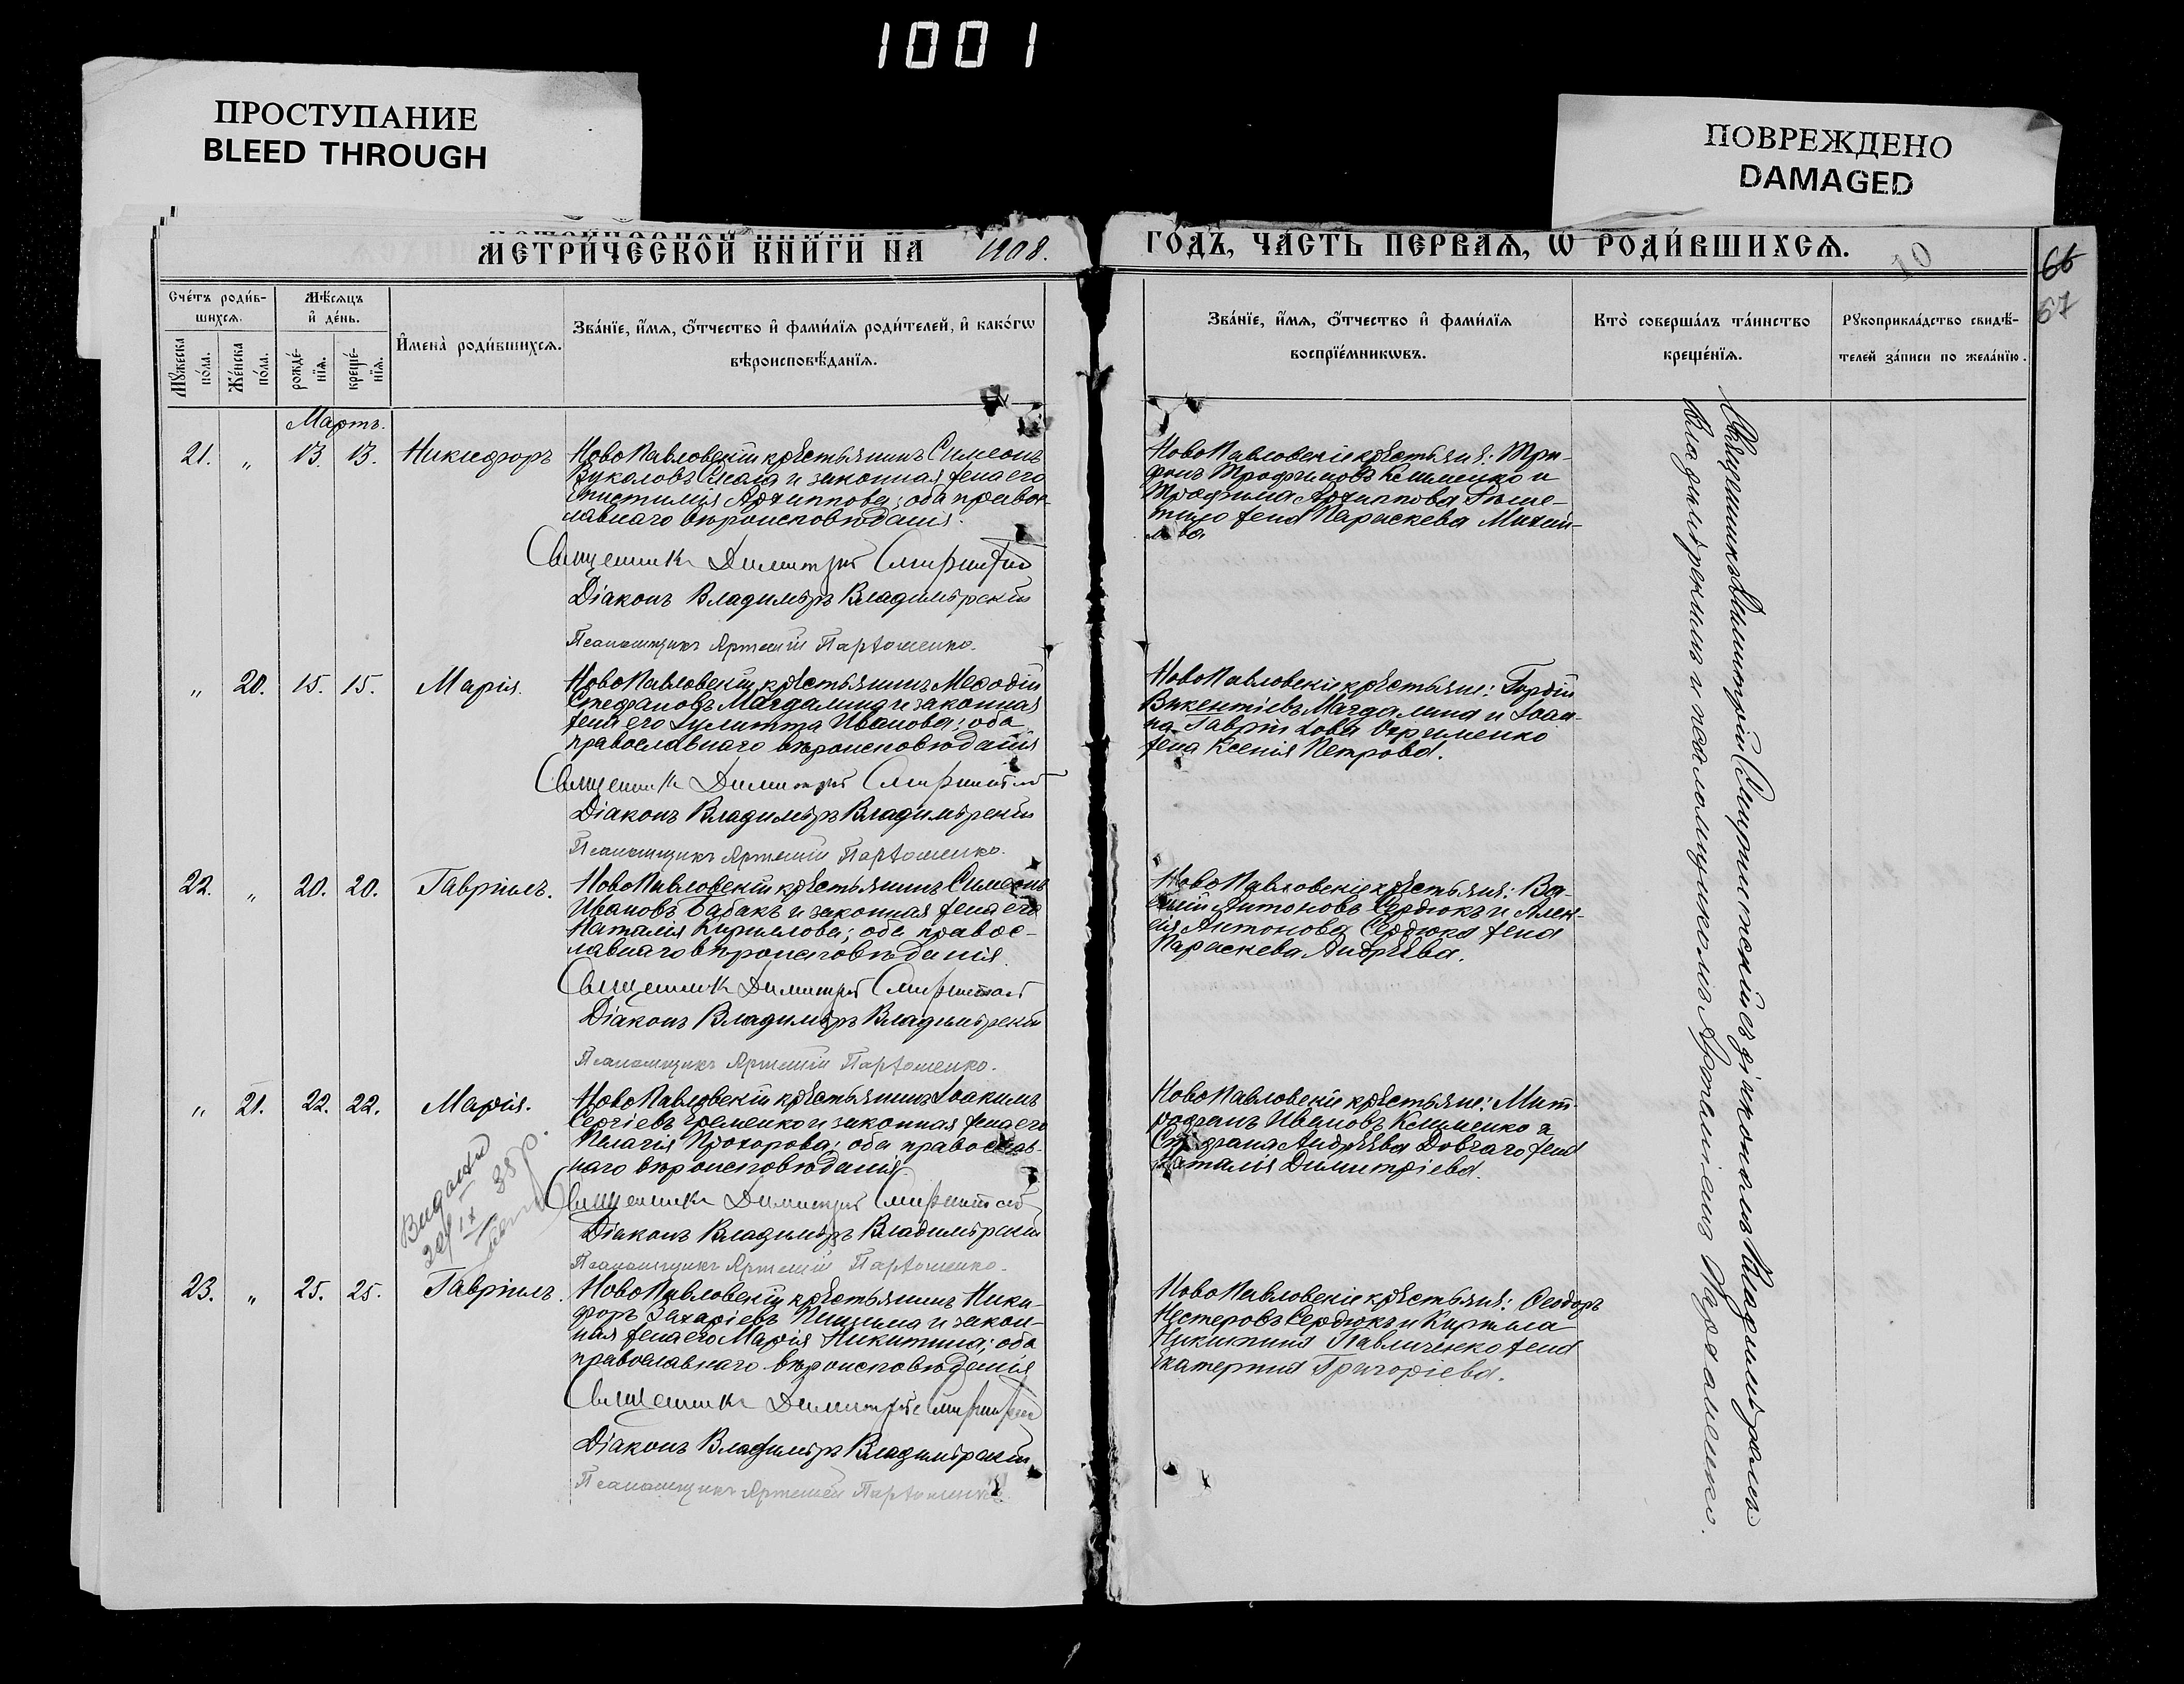 1001
ПРОСТУПАНИЕ
BLEED THROUGH
ПОВРЕЖДЕНО
DAMAGED
МЕТРИ́ЧЕСКОЙ КНИ́ГИ НА 1908.
ГО́ДЪ, ЧА́СТЬ ПЕ́РВАѦ, Ѡ РОДИ́ВШИХСѦ.
10
66
67
Сче́тъ роди́в-
шихсѧ.
Мꙋ́жеска по́ла.
Же́нска по́ла.
Мѣ́сѧцъ
и҆ де́нь.
рожде́-
нїѧ.
креще́-
нїѧ.
И҆мена̀ роди́вшихсѧ.
Зва́нїе, и҆́мѧ, ѻ҆́тчество и҆ фами́лїѧ роди́телей, и҆ како́гѡ
вѣроисповѣ́данїѧ.
Зва́нїе, и҆́мѧ, ѻ҆́тчество и҆ фами́лїѧ
воспрїе́мникѡвъ.
Кто̀ соверша́лъ та́инство
креще́нїѧ.
Рꙋкоприкла́дство свидѣ́-
телей за́писи по жела́нїю.
Мартъ.
21. „ 13. 13. Никифоръ
НовоПавловскій крестьянинъ Симеонъ
Вуколовъ и законная жена его
Епистимія Архиппова; оба правос-
лавнаго вѣроисповѣданія.
Священникъ Димитрій
Діаконъ Владиміръ Владимірскій
Псаломщикъ Артемій
НовоПавловскіе крестьяне: Три-
фонъ Трофимовъ Клименко и
Трофима Архиппова
жена Параскева Михаи-
лова
„ 20. 15. 15. Марія.
НовоПавловскій крестьянинъ Меѳодій
Стефановъ Магдалина и законная
жена его Іулитта Иванова; оба
православнаго вѣроисповѣданія
Священникъ Димитрій
Діаконъ Владиміръ Владимірскій
Псаломщикъ Артемій
НовоПавловскіе крестьяне: Гордій
Викентіевъ Магдалина и Іоан-
на Гавріилова
жена Ксенія Петрова.
22. „ 20. 20. Гавріилъ.
НовоПавловскій крестьянинъ Симеонъ
Ивановъ Бабакъ и законная жена его
Наталія Кириллова; оба правос-
лавнаго вѣроисповѣданія.
Священникъ Димитрій
Діаконъ Владиміръ Владимірскій
Псаломщикъ Артемій
НовоПавловскіе крестьяне: Ва-
силій Антоновъ Сердюкъ и Алек-
сія Антонова Сердюка жена
Параскева Андреева.
„ 21. 22. 22. Марія.
НовоПавловскій крестьянинъ Іоакимъ
Сергіевъ Еременко и законная жена его
Пелагія Прохорова; оба православ-
наго вѣроисповѣданія.
Священникъ Димитрій
Діаконъ Владиміръ Владимірскій
Псаломщикъ Артемій
НовоПавловскіе крестьяне: Мит-
рофанъ Ивановъ Клименко и
Стефана Андреева Довгаго жена
Наталія Димитріева.
IX 38р.
23. „ 25. 25. Гавріилъ.
НовоПавловскій крестьянинъ Ники-
форъ Захаріевъ и закон-
ная жена его Марія Никитина; оба
православнаго вѣроисповѣданія
Священникъ Димитрій
Діаконъ Владиміръ Владимірскій
Псаломщикъ Артемій
НовоПавловскіе крестьяне: Ѳеодоръ
Нестеровъ Сердюкъ и Кирилла
Никитина Павличенко жена
Екатерина Григоріева.
Священникъ Димитрій съ діакономъ Владиміромъ
Владимірскимъ и псаломщикомъ Артеміемъ